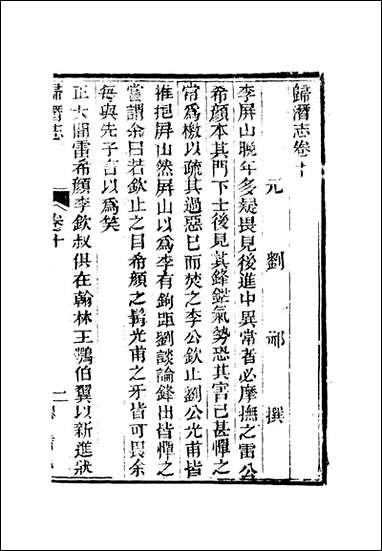 歸潛志卷十
元　劉　祁　撰
李屏山晚年多疑畏見後進中異常者必摩撫之雷公
希顏本其門下士後見其鋒鋩氣勢恐其害己甚憚之
常爲檄以疏其過惡已而焚之李公欽止劉公光甫皆
推挹屏山然屏山以爲李有鉤距劉談論鋒出皆憚之
嘗謂余曰若欽止之目希顏之髯光甫之牙皆可畏余
每與先子言以爲笑
正大間雷希顏李欽叔俱在翰林王鶚伯翼以新進狀
歸潛志
卷十